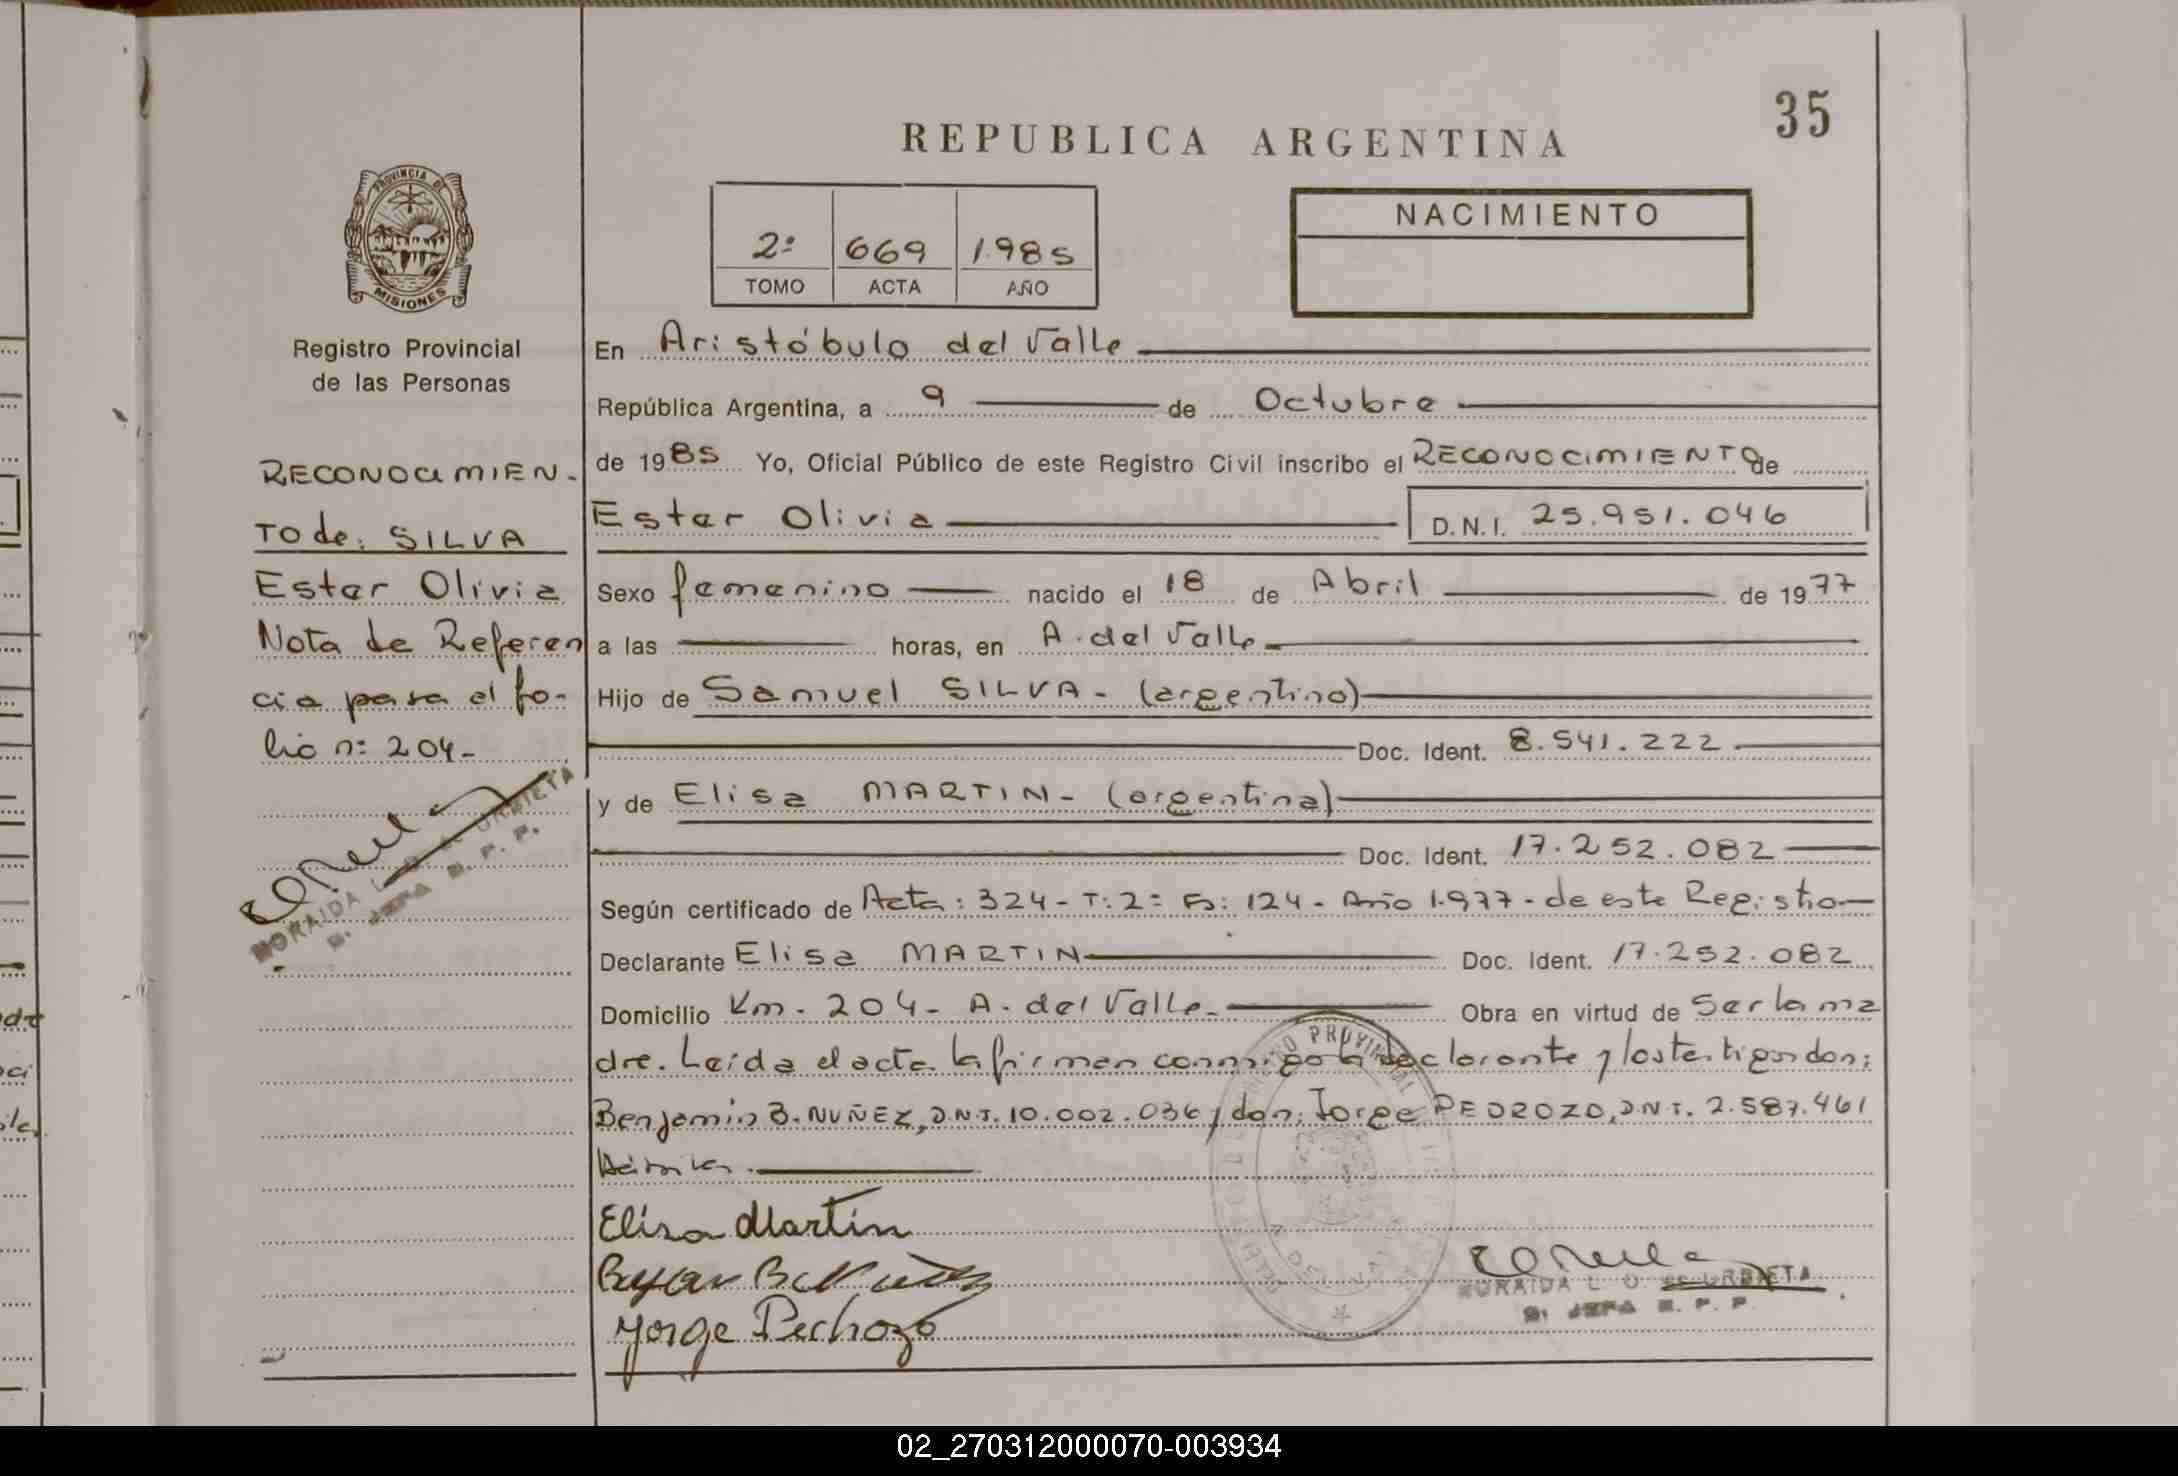 35
REPUBLICA ARGENTINA
PROVINCIA DE
MISIONES
Registro Provincial
de las Personas
2º 669 1.985
TOMO ACTA AÑO
NACIMIENTO
RECONOCIMIEN-
TO de: SILVA
Ester Olivia
Nota de Referen
cia para el fo-
lio nº 204-
NORAIDA L. O. de URBIETA
JEFA R. P. P.
En Aristóbulo del Valle
República Argentina, a 9 de Octubre
de 1985 Yo, Oficial Público de este Registro Civil inscribo el RECONOCIMIENTO de
Ester Olivia D.N.I. 25.951.046
Sexo femenino nacido el 18 de Abril de 1977
a las horas, en A. del Valle
Hijo de Samuel SILVA- (argentino)
Doc. Ident. 8.541.222
y de Elisa MARTIN- (argentina)
Doc. Ident. 17.252.082
Según certificado de Acta: 324- T: 2º Fº: 124- Año 1.977- de este Registro
Declarante Elisa MARTIN Doc. Ident. 17.252.082
Domicilio Km. 204- A. del Valle- Obra en virtud de Ser la ma
dre. Leída el acta la firman conmigo la declarante y los testigos don:
Benjamin B. NUÑEZ, D.N.I. 10.002.036 y don: Jorge PEDROZO, D.N.I. 2.587.461
Elisa Martin
Jorge Pedrozo
NORAIDA L. O. de URBIETA
JEFA R. P. P.
02_270312000070-003934